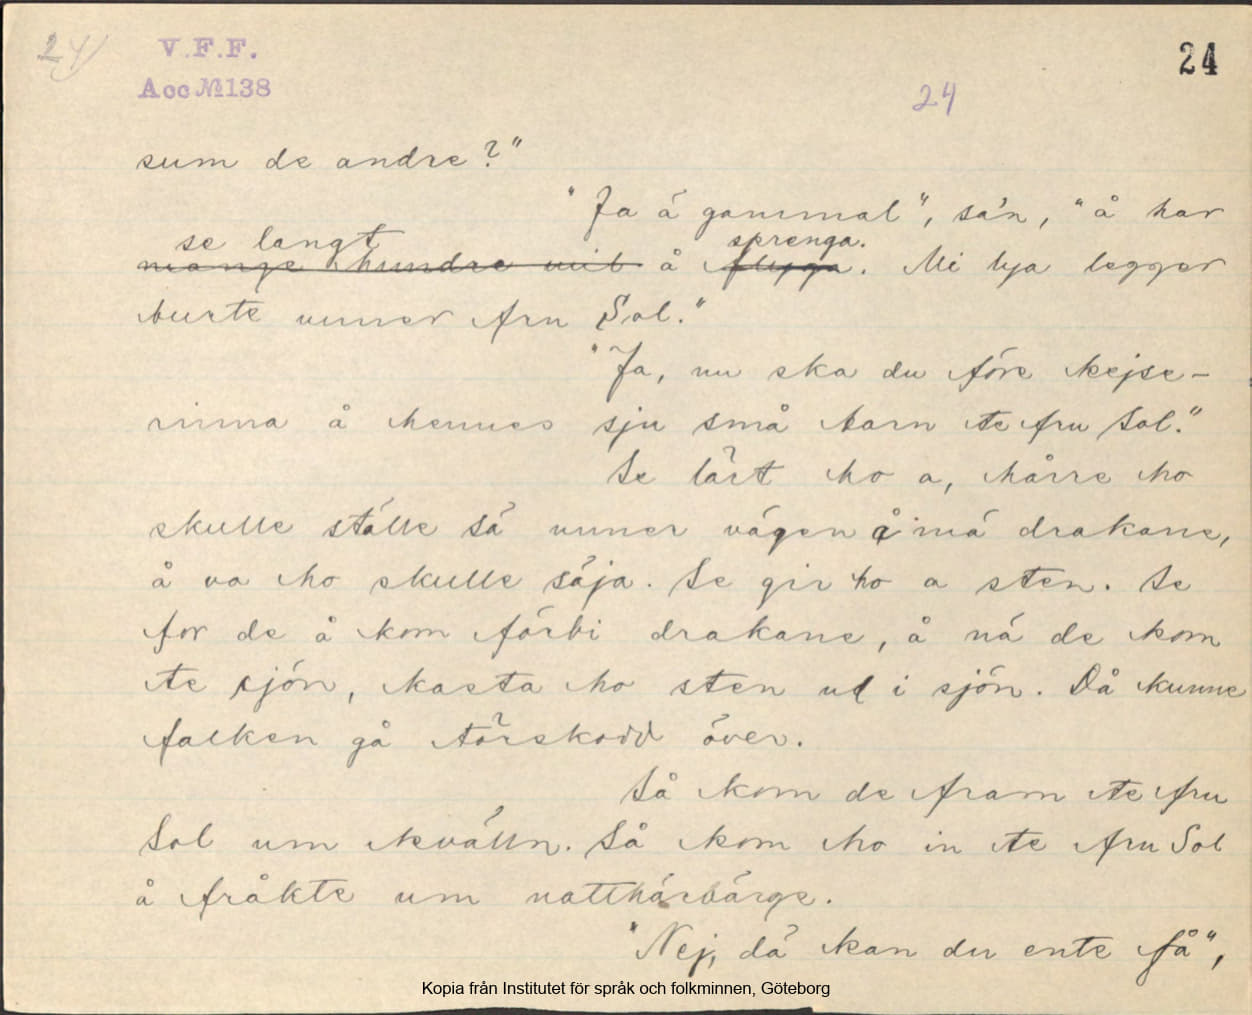 24
V.F.F.
Acc № 138
24
24
sum de andre?"
"Ja ä gammal", sa'n, "å har
se langt sprenga.
mange hundre mil å flyga. Mi lya legger
burte unner fru Sol."
"Ja, nu ska du före kejse-
rinna å hennes sju små barn te fru Sol."
Se lärt ho a, hårre ho
skulle ställe sä unner vägen å mä drakane,
å va ho skulle säja. Se gir ho a sten. Se
for de å kom förbi drakane, å nä de kom
te sjön, kasta ho sten ud i sjön. Då kunne
falken gå törskodd över.
Så kom de fram te fru
Sol um kvälln. Så kom ho in te fru Sol
å fråkte um natthärbärge.
"Nej, dä kan du ente få",
Kopia från Institutet för språk och folkminnen, Göteborg